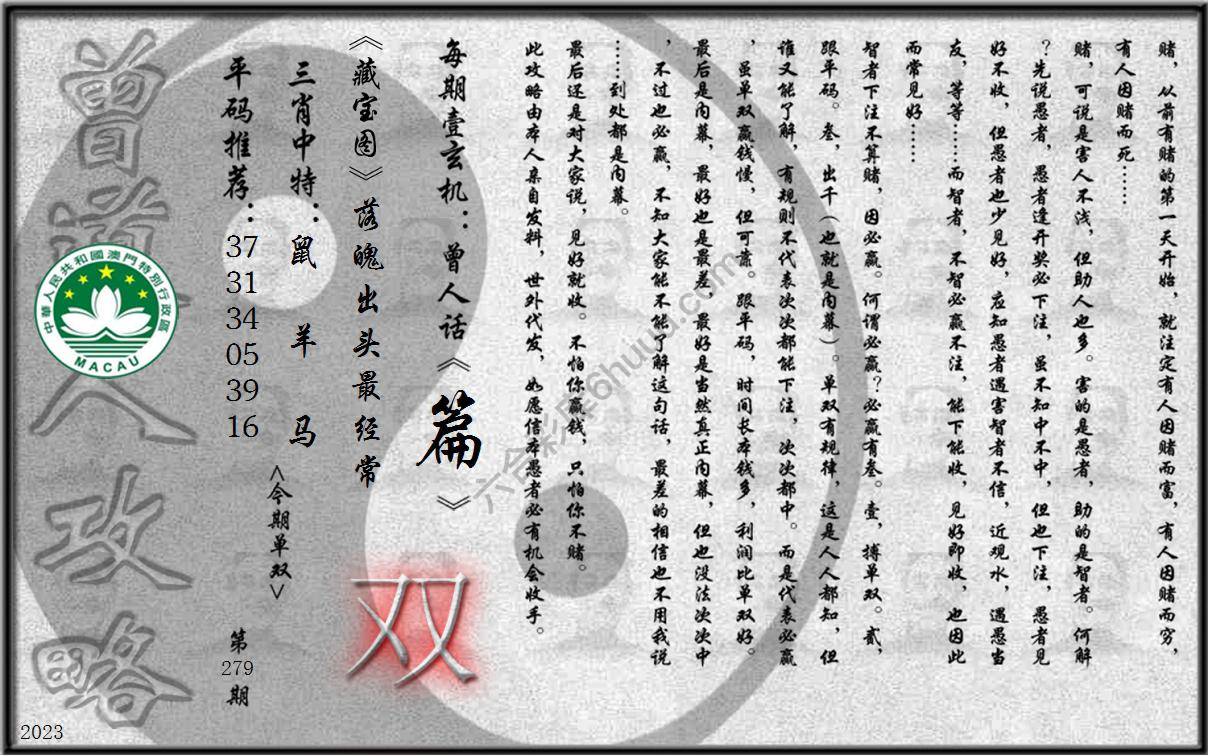 赌，从前有赌的第一天开始，就注定有人因赌而富，有人因赌而穷，
有人因赌而死……
赌，可说是害人不浅，但助人也多。害的是愚者，助的是智者。何解
？先说愚者，愚者逢开奖必下注，虽不知中不中，但也下注，愚者见
好不收，但愚者也少见好，应知愚者遇害智者不信，近观水，遇愚当
友，等等……而智者，不智必赢不注，能下能收，见好即收，也因此
而常见好……
智者下注不算赌，因必赢。何谓必赢？必赢有叁。壹，搏单双。贰，
跟平码。叁，出千（也就是内幕）。单双有规律，这是人人都知，但
谁又能了解，有规则不代表次次都能下注，次次都中。而是代表必赢
，虽单双赢钱慢，但可靠。跟平码，时间长本钱多，利润比单双好。
最后是内幕，最好也是最差，最好是当然真正内幕，但也没法次次中
，不过也必赢，不知大家能不能了解这句话，最差的相信也不用我说
……到处都是内幕。
最后还是对大家说，见好就收。不怕你赢钱，只怕你不赌。
此攻略由本人亲自发料，世外代发，如愿信本愚者必有机会收手。
每期壹玄机：曾人话《篇》
《藏宝图》落魄出头最经常
双
三肖中特：鼠 羊 马
<今期单双>
平码推荐：37 31 34 05 39 16
第279期
曾道人攻略
中華人民共和國澳門特別行政區
MACAU
2023
六合彩库6huuu.com